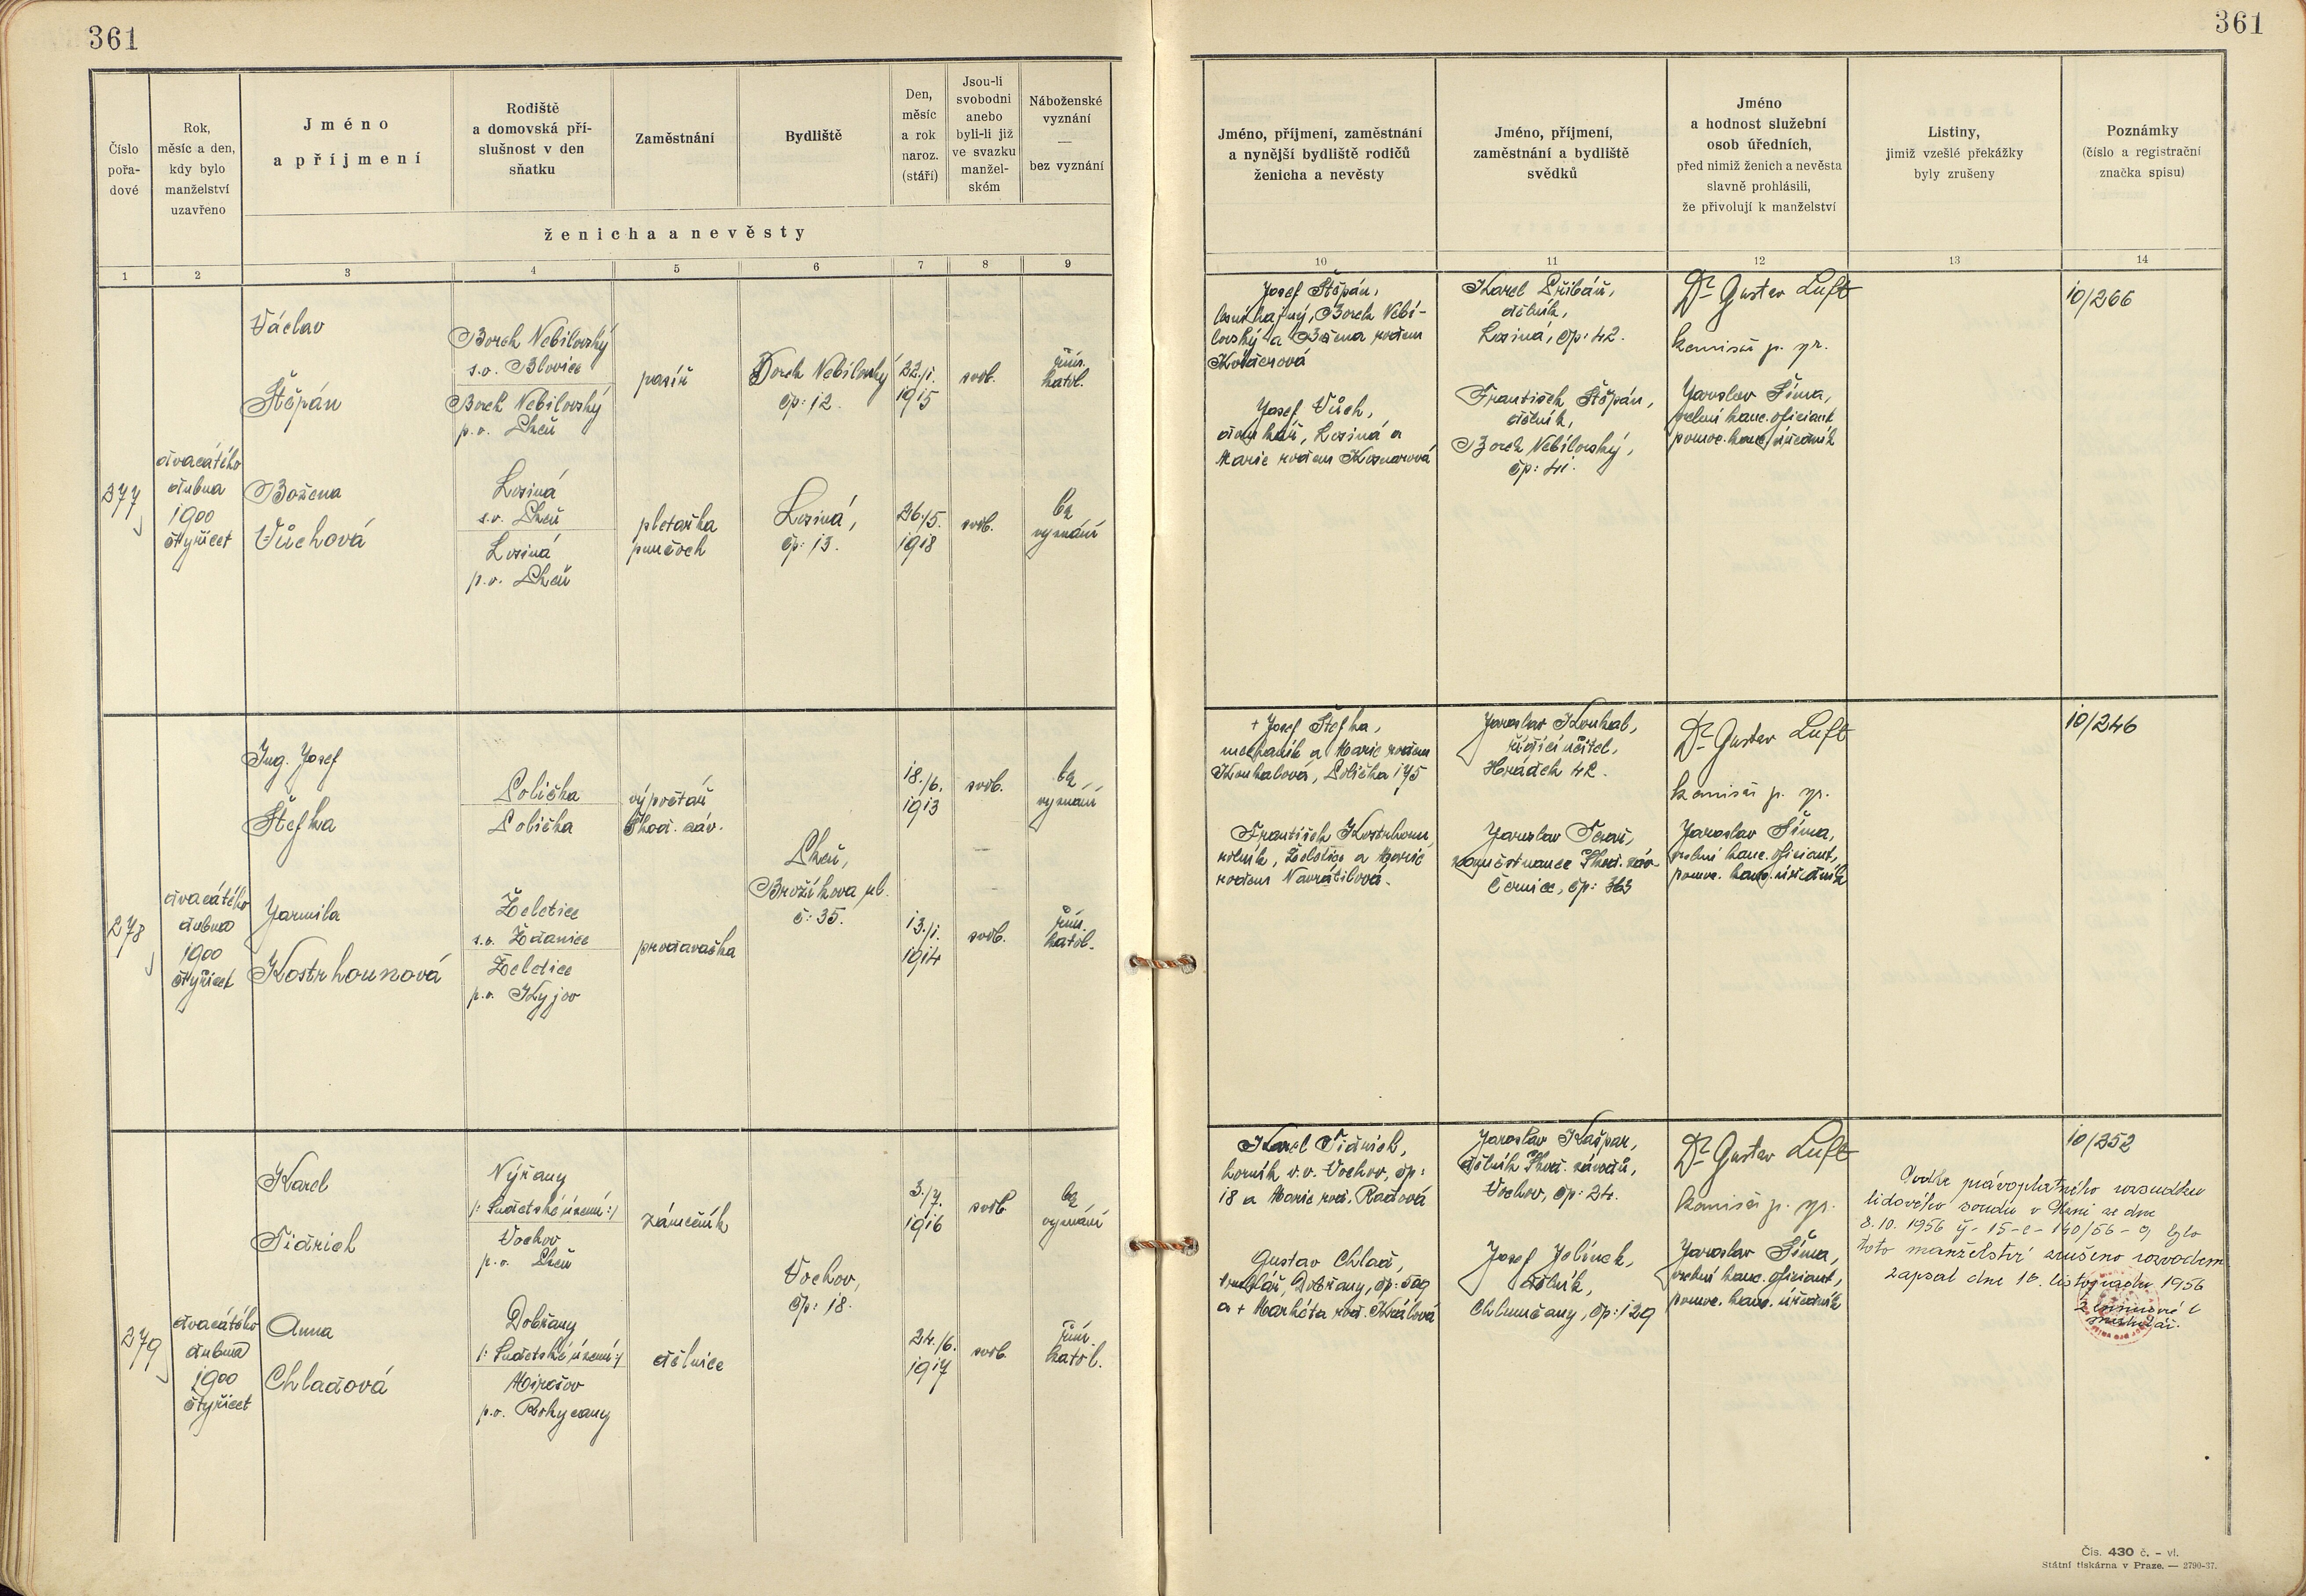 361
361
Číslo
pořa-
dové
Rok,
měsíc a den,
kdy bylo
manželství
uzavřeno
Jméno
a příjmení
Rodiště
a domovská pří-
slušnost v den
sňatku
Zaměstnání
Bydliště
Den,
měsíc
a rok
naroz.
(stáří)
Jsou-li
svobodni
anebo
byli-li již
ve svazku
manžel-
ském
Náboženské
vyznání
—
bez vyznání
ženicha a nevěsty
Jméno, příjmení, zaměstnání
a nynější bydliště rodičů
ženicha a nevěsty
Jméno, příjmení,
zaměstnání a bydliště
svědků
Jméno
a hodnost služební
osob úředních,
před nimiž ženich a nevěsta
slavně prohlásili,
že přivolují k manželství
Listiny,
jimiž vzešlé překážky
byly zrušeny
Poznámky
(číslo a registrační
značka spisu)
1 2 3 4 5 6 7 8 9 10 11 12 13 14
277
dvacátého
dubna
1900
čtyřicet
Václav
Štěpán
Borek Nebílovský
s.o. Blovice
Borek Nebílovský
p.o. Plzeň
pasíř
Borek Nebílovský
čp: 12.
22./1.
1915
svob.
řím.
katol.
Božena
Vůchová
Losiná
s.o. Plzeň
Losiná
p.o. Plzeň
pletařka
punčoch
Losiná,
čp: 13.
26./5.
1918
svob.
bez
vyznání
Josef Štěpán,
lesní hajný, Borek Nebí-
lovský a Božena rodem
Josef Vůch,
domkář, Losiná a
Marie rodem
Karel Přibáň,
dělník,
Losiná, čp: 42.
František Štěpán,
dělník,
Borek Nebílovský,
čp: 41.
Dr Gustav Luft
komisař p. spr.
Jaroslav Šíma,
kanc. oficiant
pomoc. kanc. úředník
10/266
278
dvacátého
dubna
1900
čtyřicet
Ing. Josef
Štefka
Polička
Polička
výpočtař
Škod. záv.
Plzeň,
Brožíkova ul.
č: 35.
18./6.
1913
svob.
bez
vyznání
Jarmila
Kostrhounová
Želetice
s.o. Ždánice
Želetice
p.o. Kyjov
prodavačka
13./1.
1914
svob.
řím.
katol.
+ Josef Štefka,
mechanik a Marie rodem
Koukalová, Polička 175
František Kostrhoun,
rolník, Želetice a Marie
rodem Navrátilová.
Jaroslav Koukal,
řídící učitel,
Hrádek 42.
Jaroslav
zaměstnanec Škod. záv.
Černice, čp: 363
Dr Gustav Luft
komisař p. spr.
Jaroslav Šíma,
kanc. oficiant,
pomoc. kanc. úředník
10/246
279
dvacátého
dubna
1900
čtyřicet
Karel
Tidrich
Nýřany
/: Sudetské území :/
Vochov
p.o. Plzeň
zámečník
Vochov,
čp: 18.
3./7.
1916
svob.
bez
vyznání
Anna
Chladová
Dobřany
/: Sudetské území :/
Mirošov
p.o. Rokycany
dělnice
24./6.
1917
svob.
řím.
katol.
Karel Tidrich,
horník v.v. Vochov, čp:
18 a Marie rod. Radová
Gustav Chlad,
truhlář, Dobřany, čp: 509
a + Markéta rod. Králová
Jaroslav Kašpar,
dělník Škod. závodů,
Vochov, čp: 24.
Josef Jelínek,
dělník,
Chlumčany, čp: 129
Dr Gustav Luft
komisař p. spr.
Jaroslav Šíma,
kanc. oficiant,
pomoc. kanc. úředník
10/252
Podle právoplatného rozsudku
lidového soudu v Plzni ze dne
8.10. 1956 čj- 15-c-140/56-9 bylo
toto manželství zrušeno rozvodem
Zapsal dne 16. listopadu 1956
Čís. 430 č. – vl.
Státní tiskárna v Praze. — 2790-37.